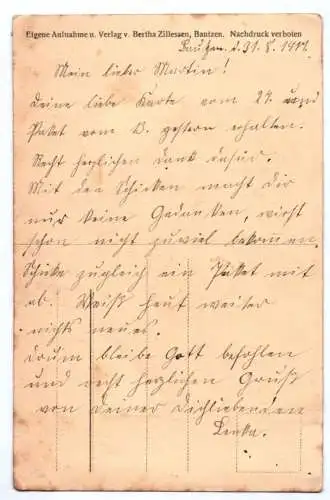 Eigene Aufnahme u. Verlag v. Bertha Zillessen, Bautzen. Nachdruck verboten
Bautzen. d. 31. 8. 1917.
Mein lieber Martin!
Deine liebe Karte vom 29. und
Paket vom B. gestern erhalten.
Recht herzlichen dank dafür.
Mit den Schicken macht dir
nur keine Gedanken, wirst
schon nicht zuviel bekommen.
Schicke zugleich ein Paket mit
ab. Weiß heut weiter
nichts neues.
Drum bleibe Gott befohlen
und recht herzlichen Gruß
von deiner dichliebenden
Lenka.